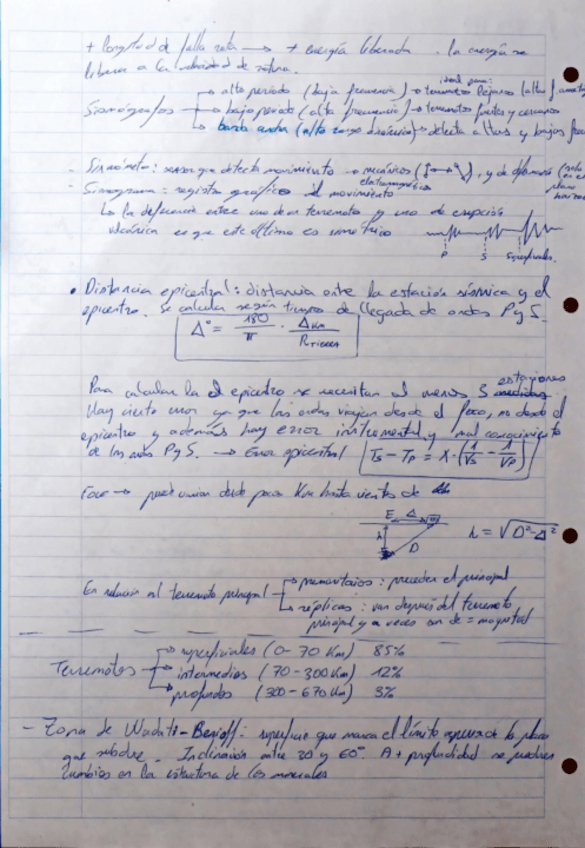 + longitud de falla rota → + energía liberada. la energía se
libera a la velocidad de rotura.
ideal para:
Sismógrafos → alto periodo (baja frecuencia) → terremotos lejanos (alta
→ bajo periodo (alta frecuencia) → terremotos fuertes y cercanos
→ banda ancha (alto rango dinámico) → detecta altas y bajas
- Sismómetro: sensor que detecta movimiento → mecánicos, y de
electromagnéticos
- Sismograma: registro gráfico del movimiento
↳ La diferencia entre uno de un terremoto y uno de erupción
volcánica es que este último es simétrico
P S Superficiales.
• Distancia epicentral: distancia entre la estación sísmica y el
epicentro. Se calcula según tiempos de llegada de ondas P y S.
Δ° = 180/π · Δkm/RTIERRA
Para calcular la el epicentro se necesitan al menos 3 estaciones
Hay cierto error ya que las ondas viajan desde el foco, no desde el
epicentro y además hay error instrumental y mal conocimiento
de las ondas P y S. → Error epicentral Ts - Tp = X · (1/Vs - 1/Vp)
Foco → puede variar desde pocos Km hasta cientos de
E Δ
h D h = √D²-Δ²
En relación al terremoto principal → premonitorios: preceden el principal
→ réplicas: van después del terremoto
principal y a veces son de = magnitud
Terremotos → superficiales (0-70 Km) 85%
→ intermedios (70-300 Km) 12%
→ profundos (300-670 Km) 3%
- Zona de Wadati-Benioff: superficie que marca el límite superior de la placa
que subduce. Inclinación entre 20 y 60°. A + profundidad se producen
cambios en la estructura de los minerales